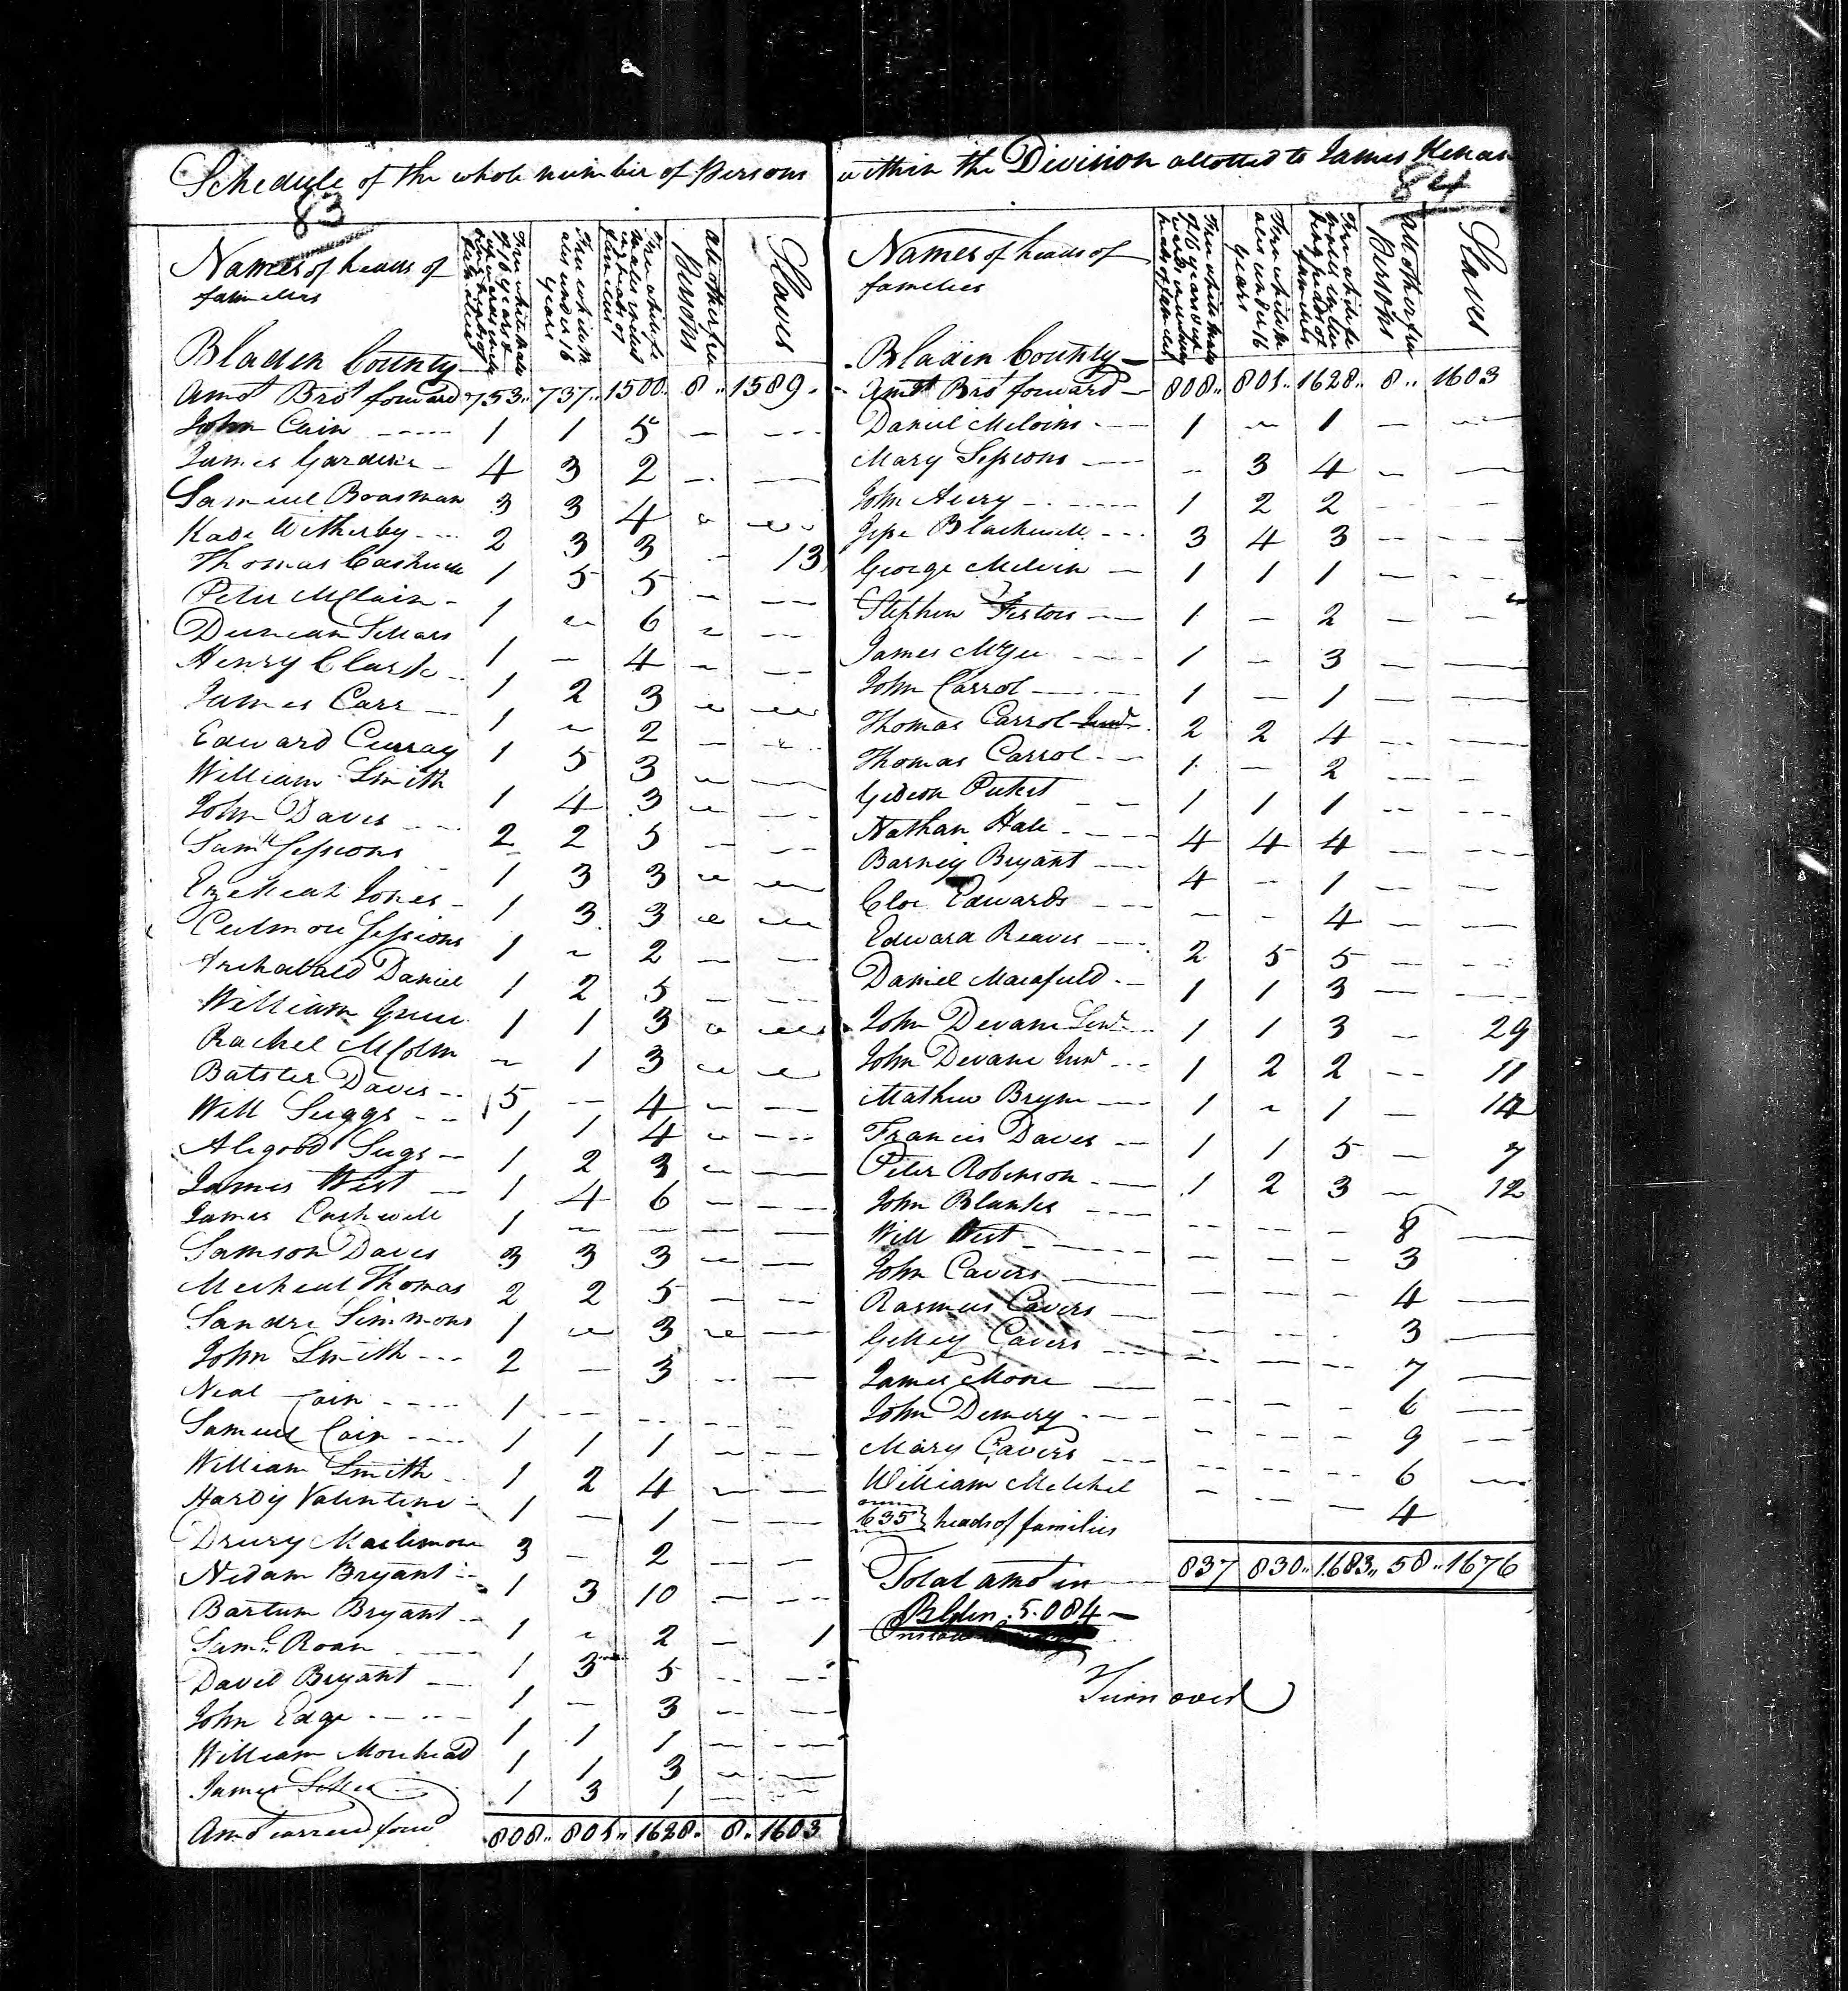 Schedule of the whole number of Persons within the Division allotted to James Kenan
83
Names of heads of families
Free white males of 16 years & upwards including heads of families
Free white males under 16 years
Free white females including heads of families
all other free Persons
Slaves
Bladen County
Amot Brot forward 753.. 737.. 1500.. 8.. 1589.
John Cain 1 1 5 — —
James Gardener 4 3 2 — —
Samuel Boasman 3 3 4 — —
Kade Wetherby 2 3 3 - 13
Thomas Cashwell 1 5 5 — —
Peter McClain 1 — 6 — —
Duncan Sellars 1 — 4 — —
Henry Clark 1 2 3 — —
James Carr 1 — 2 — —
Edward Curray 1 5 3 — —
William Smith 1 4 3 — —
John Daves 2 2 5 — —
Samll Sessions 1 3 3 — —
Ezekeal Jones 1 3 3 — —
Culmore Sessions 1 — 2 — —
Archabald Daniel 1 2 5 — —
William Green 1 1 3 — —
Rachel McColm — 1 3 — —
Batster Daves 5 — 4 — —
Will Suggs 1 1 4 — —
Alegood Sugs 1 2 3 — —
James West 1 4 6 — —
James Cashwell 1 — — — —
Samson Daves 3 3 3 — —
Mecheal Thomas 2 2 5 — —
Sandre Simmons 1 — 3 — —
John Smith 2 — 3 — —
Neal Cain 1 — — — —
Samuel Cain 1 1 1 — —
William Smith 1 2 4 — —
Hardy Valentine 1 — 1 — —
Drury Mactimore 3 — 2 — —
Nedam Bryant 1 3 10 — —
Bartum Bryant 1 — 2 — 1
Saml. Roan 1 3 5 — —
David Bryant 1 — 3 — —
John Edge 1 1 1 — —
William Morehead 1 1 3 — —
James 1 3 1 — —
Amot carried forwd 808.. 801.. 1628. 8. 1603
84
Names of heads of families
Free white males of 16 years & upwards including heads of families
Free white males under 16 years
Free white females including heads of families
all other free Persons
Slaves
Bladen County
Amot Brot forward 808.. 801.. 1628.. 8.. 1603
Daniel Melvins 1 — 1 — —
Mary Sessions — 3 4 — —
John Avery 1 2 2 — —
Jesse Blackwell 3 4 3 — —
George Melvin 1 1 1 — —
Stephen 1 — 2 — —
James McGee 1 — 3 — —
John Carrol 1 — 1 — —
Thomas Carrol Junr 2 2 4 — —
Thomas Carrol 1 — 2 — —
Gideon Puket 1 1 1 — —
Nathan Hale 4 4 4 — —
Barney Bryant 4 — 1 — —
Cloe Edwards — — 4 — —
Edward Reaves 2 5 5 — —
Daniel Maxfield 1 1 3 — —
John Devane Senr 1 1 3 — 29
John Devane Junr 1 2 2 — 11
Mathew Bryan 1 — 1 — 14
Francis Daves 1 1 5 — 7
Peter Robinson 1 2 3 — 12
John Blanks — — — 8 —
Will West — — — 3
John Cavers — — — 4 —
Rasmus Cavers — — — 3 —
Gelley Cavers — — — 7 —
James Moore — — — 6 —
John Demery — — — 9 —
Mary Cavers — — — 6 —
William Metchel — — — 4
635 heads of families
Total amot in 837 830.. 1683.. 58.. 1676
Bladen. 5.084 —
Turn over